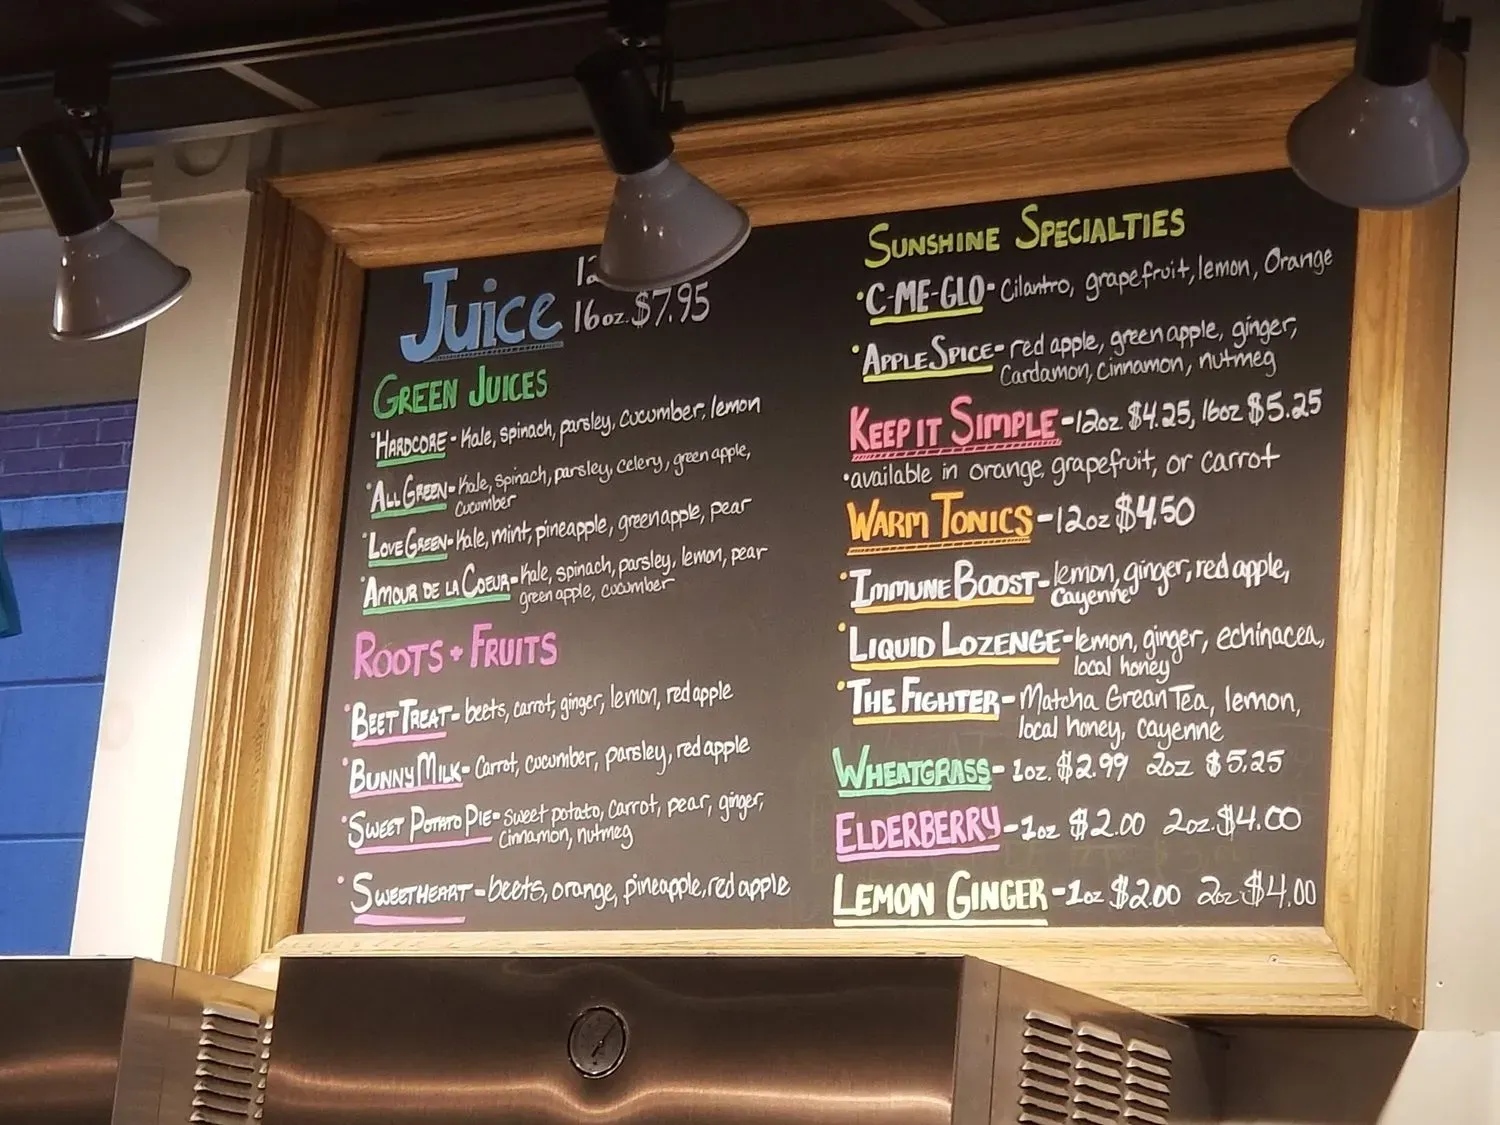 Juice 12
16oz. $7.95
GREEN JUICES
•HARDCORE - Kale, spinach, parsley, cucumber, lemon
•ALL GREEN - Kale, spinach, parsley, celery, green apple,
cucumber
•LOVE GREEN - Kale, mint, pineapple, green apple, pear
•AMOUR DE LA COEUR - Kale, spinach, parsley, lemon, pear
green apple, cucumber
ROOTS + FRUITS
•BEET TREAT - beets, carrot, ginger, lemon, red apple
•BUNNY MILK - Carrot, cucumber, parsley, red apple
•SWEET POTATO PIE - Sweet potato, carrot, pear, ginger,
cinnamon, nutmeg
•SWEETHEART - beets, orange, pineapple, red apple
SUNSHINE SPECIALTIES
•C-ME-GLO - Cilantro, grapefruit, lemon, Orange
•APPLE SPICE - red apple, green apple, ginger,
Cardamon, cinnamon, nutmeg
KEEP IT SIMPLE - 12oz $4.25, 16oz $5.25
•available in orange, grapefruit, or carrot
WARM TONICS - 12oz $4.50
•IMMUNE BOOST - lemon, ginger, red apple,
Cayenne
•LIQUID LOZENGE - lemon, ginger, echinacea,
local honey
•THE FIGHTER - Matcha Grean Tea, lemon,
local honey, cayenne
WHEATGRASS - 1oz. $2.99 2oz $5.25
ELDERBERRY - 1oz $2.00 2oz. $4.00
LEMON GINGER - 1oz $2.00 2oz $4.00